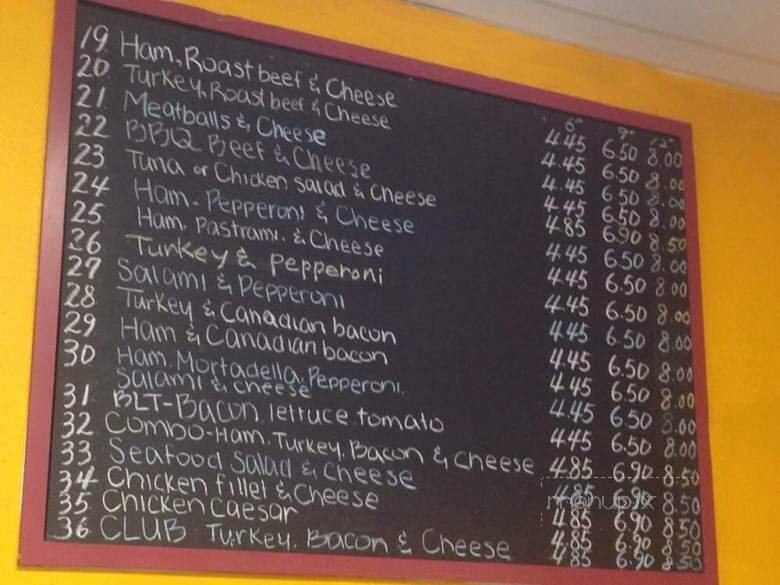 6" 9" 12"
19 Ham, Roast beef & Cheese 4.45 6.50 8.00
20 Turkey, Roast beef & Cheese 4.45 6.50 8.00
21 Meatballs & Cheese 4.45 6.50 8.00
22 BBQ Beef & Cheese 4.45 6.50 8.00
23 Tuna or Chicken salad & Cheese 4.85 6.90 8.50
24 Ham, Pepperoni & Cheese 4.45 6.50 8.00
25 Ham, Pastrami, & Cheese 4.45 6.50 8.00
26 Turkey & Pepperoni 4.45 6.50 8.00
27 Salami & Pepperoni 4.45 6.50 8.00
28 Turkey & Canadian bacon 4.45 6.50 8.00
29 Ham & Canadian bacon 4.45 6.50 8.00
30 Ham, Mortadella, Pepperoni, 4.45 6.50 8.00
Salami & cheese
31 BLT-Bacon, lettuce, tomato 4.45 6.50 8.00
32 Combo-Ham, Turkey, Bacon & Cheese 4.85 6.90 8.50
33 Seafood Salad & Cheese 4.85 6.90 8.50
34 Chicken fillet & Cheese 4.85 6.90 8.50
35 Chicken caesar 4.85 6.90 8.50
36 CLUB Turkey, Bacon & Cheese 4.85 6.90 8.50
menupix